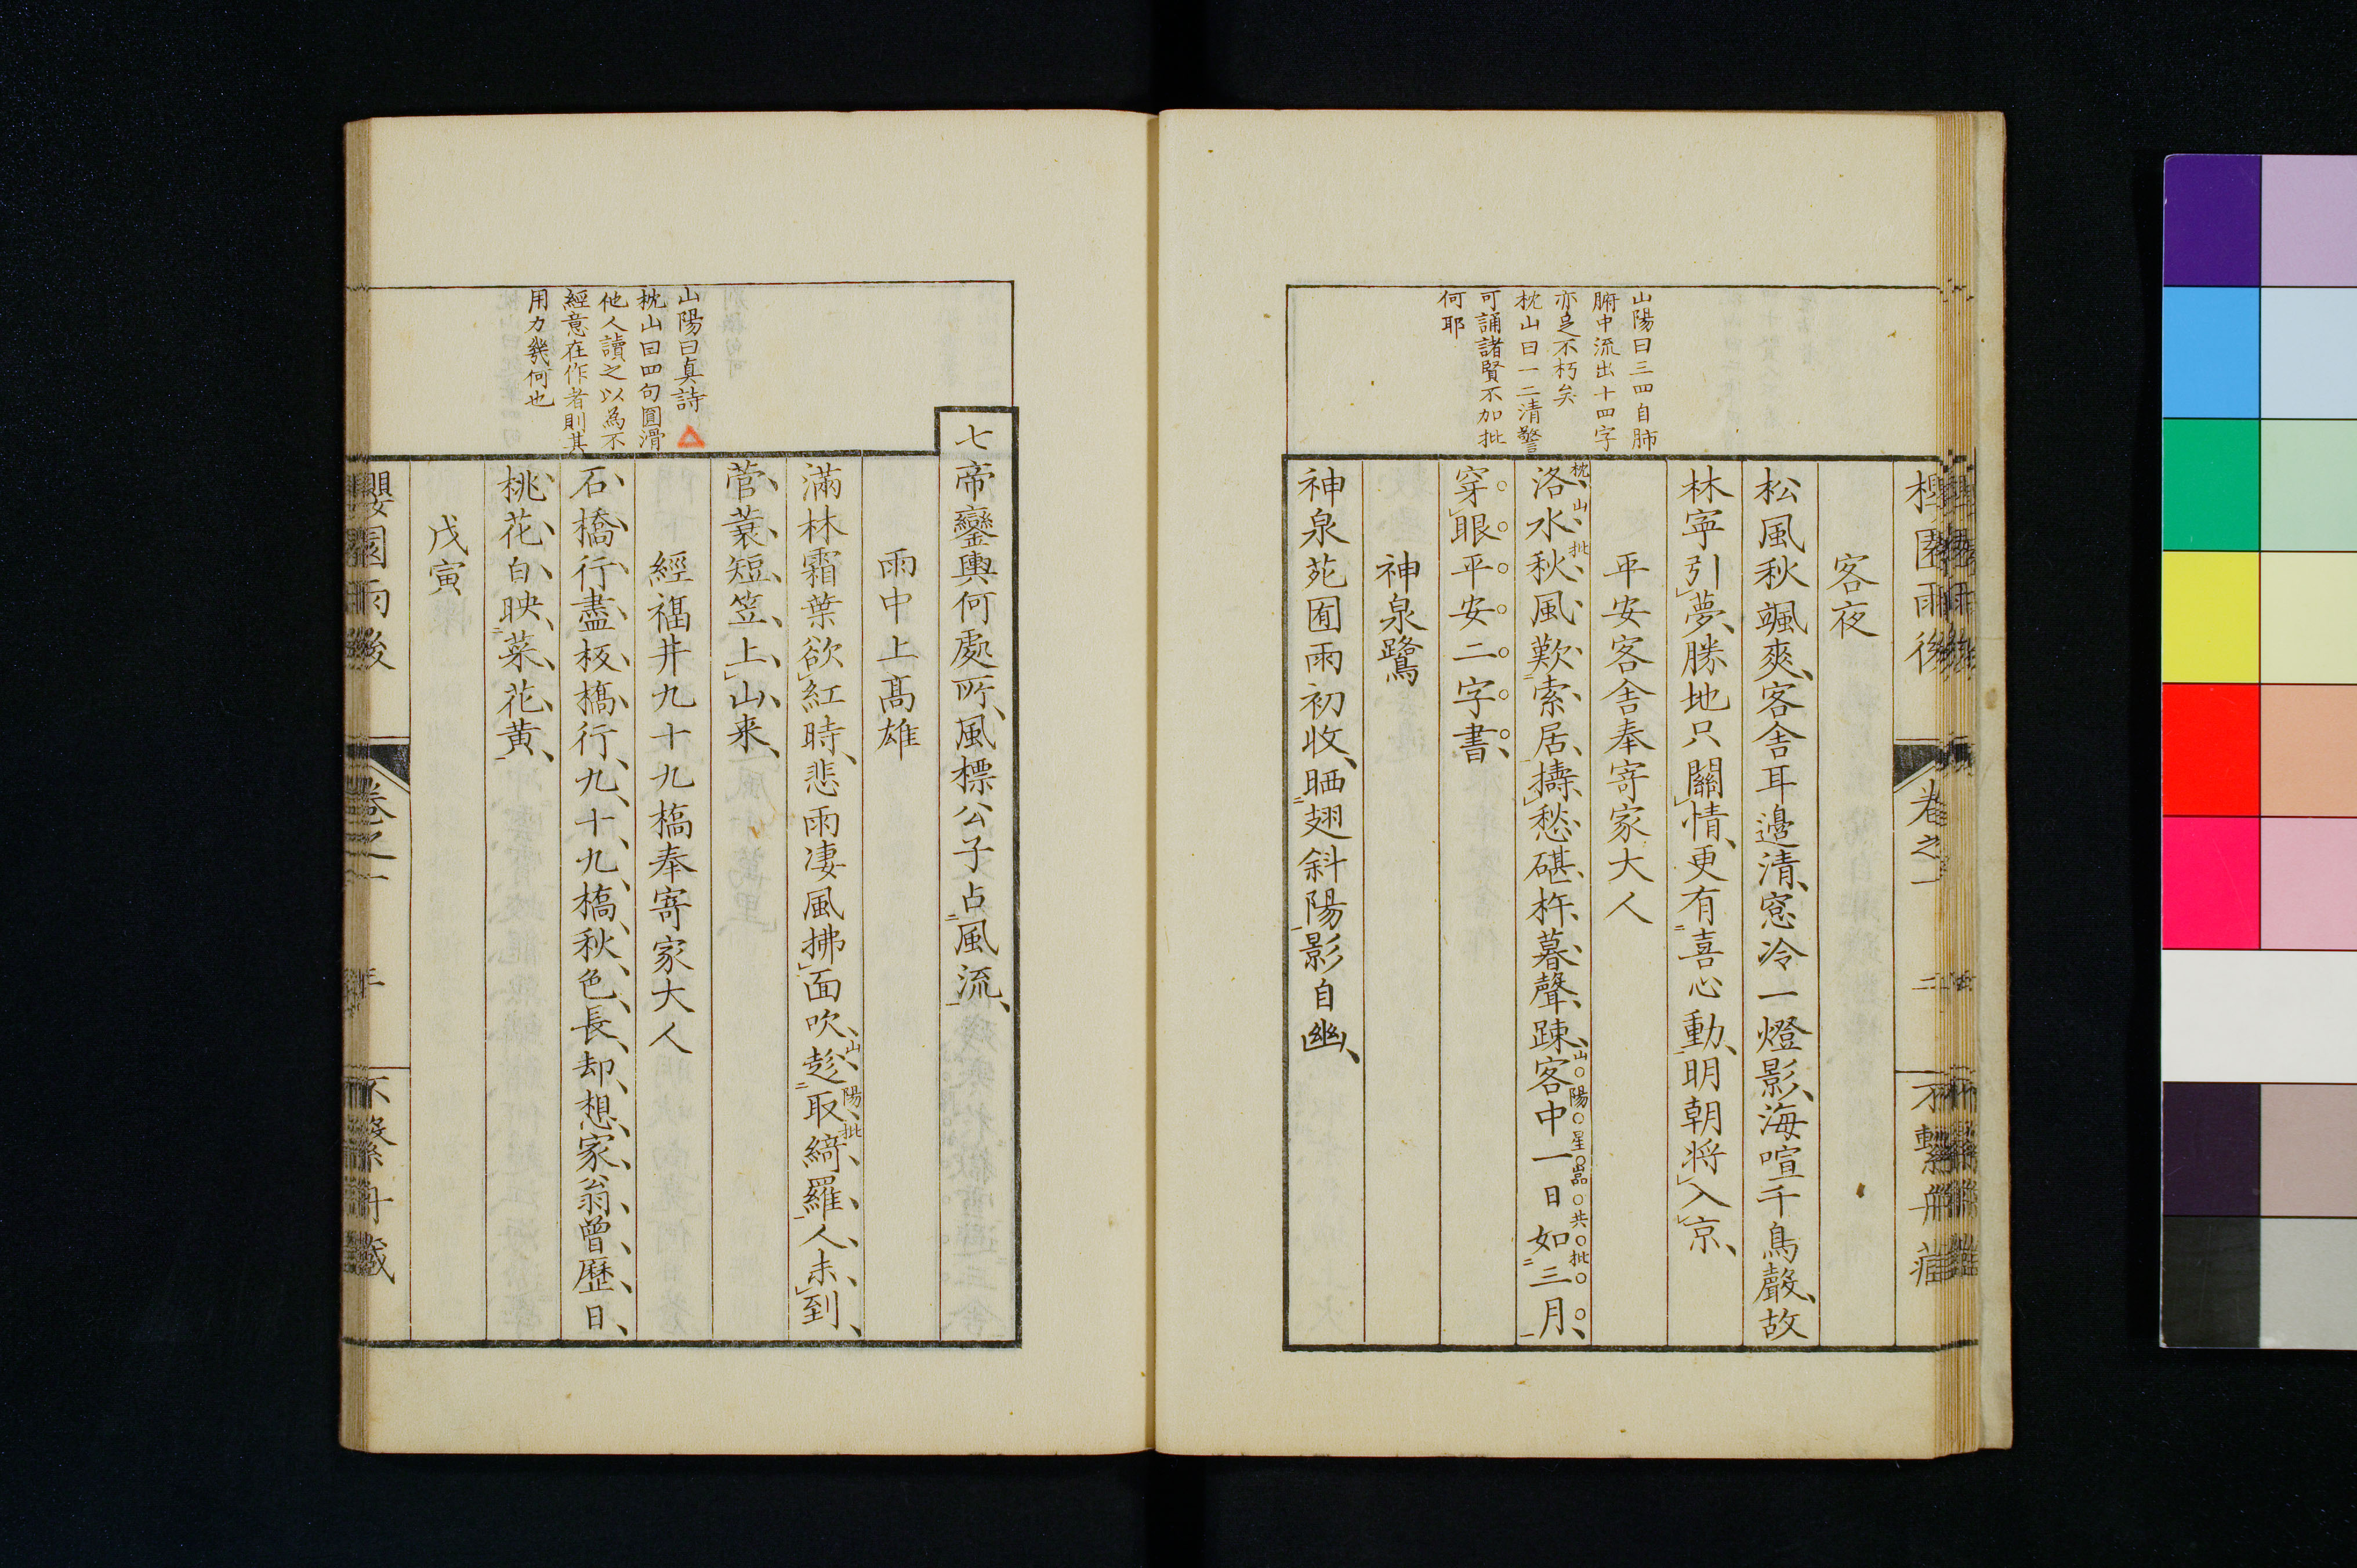 山陽曰三四自肺
腑中流出十四字
亦足不朽矣
枕山曰一二清警
可誦諸賢不加批
何耶
客夜
松風秋颯爽、客舎耳邊清、窓冷一燈影、海喧千鳥聲、故
林寧引夢、勝地只關情、更有喜心動、明朝将入京、
平安客舎奉寄家大人
枕山批
洛水秋風歎索居、擣愁碪杵暮聲踈、客中一日如三月、
山陽星巖共批
穿眼平安二字書、
神泉鷺
神泉苑囿雨初收、晒翅斜陽影自幽、
卷之一
二
山陽曰真詩
枕山曰四句圓滑
他人讀之以為不
經意在作者則其
用力幾何也
七帝鑾輿何處所、風標公子占風流、
雨中上髙雄
滿林霜葉欲紅時、悲雨凄風拂面吹、趁取綺羅人未到、
山陽批
菅蓑短笠上山来、
經福井九十九橋奉寄家大人
石橋行盡板橋行、九十九橋秋色長、却想家翁曾歴日、
桃花白映菜花黄、
戊寅
櫻園雨後
卷之一